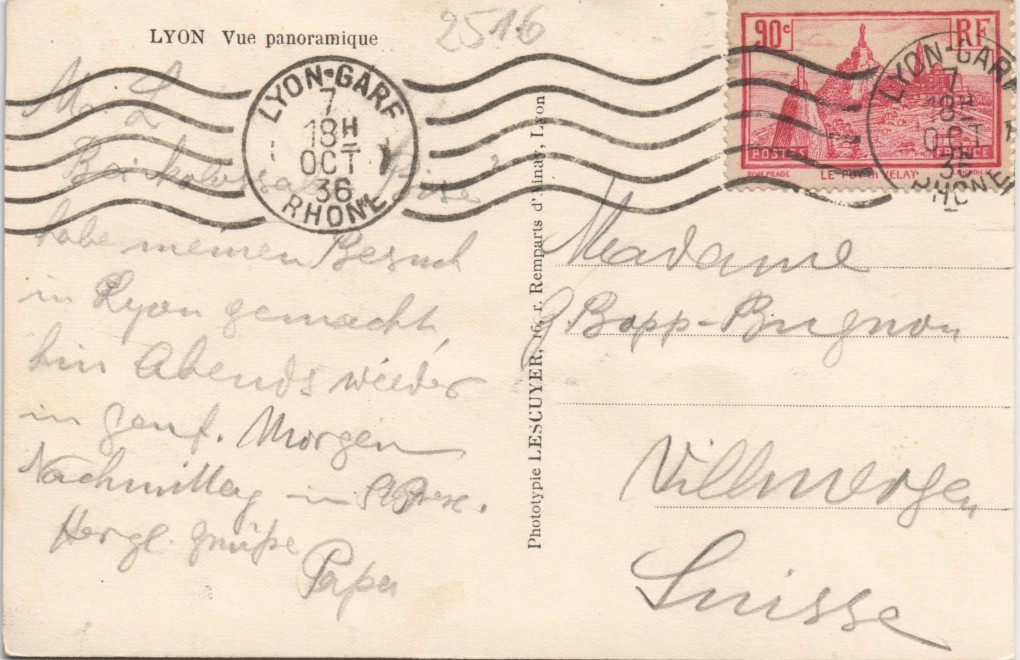 LYON Vue panoramique
2516
M. L.
Bei
habe meinen Besuch
in Lyon gemacht,
bin Abends wieder
in Genf. Morgen
Nachmittag in
Herzl. Grüße
Papa
LYON-GARE
7
18H
OCT
36
RHONE
Phototypie LESCUYER, 16, r. Remparts d'Ainay, Lyon
90c RF
POSTES FRANCE
LE PUY EN VELAY
LYON-GARE
7
18H
OCT
36
RHONE
Madame
G. Bopp-Bugnon
Villmergen
Suisse